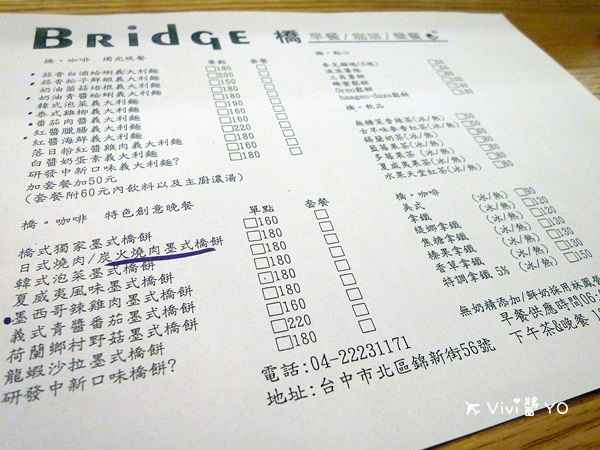 BRIDGE 橋 早餐/咖啡/簡餐
橋。咖啡 燭光晚餐 單點 套餐
蒜香白酒蛤蜊義大利麵 180
蒜香松子鮮蝦義大利麵 200
奶油菌菇培根義大利麵 150
奶油青醬蛤蜊義大利麵 180
韓式泡菜義大利麵 190
泰式雞柳義大利麵 160
番茄肉醬義大利麵 160
紅醬臘腸義大利麵 220
紅醬海鮮義大利麵 180
落日粉紅醬雞肉義大利麵 160
白醬奶蛋素義大利麵 180
研發中新口味義大利麵?
加套餐加50元
(套餐附60元內飲料以及主廚濃湯)
橋。咖啡 特色創意晚餐 單點 套餐
橋式獨家墨式橋餅 160
日式燒肉/炭火燒肉墨式橋餅 180
韓式泡菜墨式橋餅 180
夏威夷風味墨式橋餅 180
墨西哥辣雞肉墨式橋餅 180
義式青醬番茄墨式橋餅 180
荷蘭鄉村野菇墨式橋餅 160
龍蝦沙拉墨式橋餅 220
研發中新口味橋餅? 180
橋。點心
蜂蜜鬆餅
Oreo鬆餅
haagen-dazs鬆餅
橋。飲品
無糖茉香綠茶(冰/熱)
古早味麥香紅茶(冰/熱)
錫蘭奶茶(冰/熱)
藍莓果茶(冰/熱)
多莓果茶(冰/熱)
夏威夷紅茶(冰/熱)
水果天堂紅茶(冰/熱)
橋。咖啡
美式 (冰/熱) 90
拿鐵 (冰/熱) 120
緹娜拿鐵 (冰/熱) 130
焦糖拿鐵 (冰/熱) 130
榛果拿鐵 (冰/熱) 130
香草拿鐵 (冰/熱) 130
特調拿鐵 5% (冰/熱) 150
無奶精添加/鮮奶採用林鳳營
早餐供應時間06:3
下午茶&晚餐 1
電話:04-22231171
地址:台中市北區錦新街56號
Vivi醬 YO